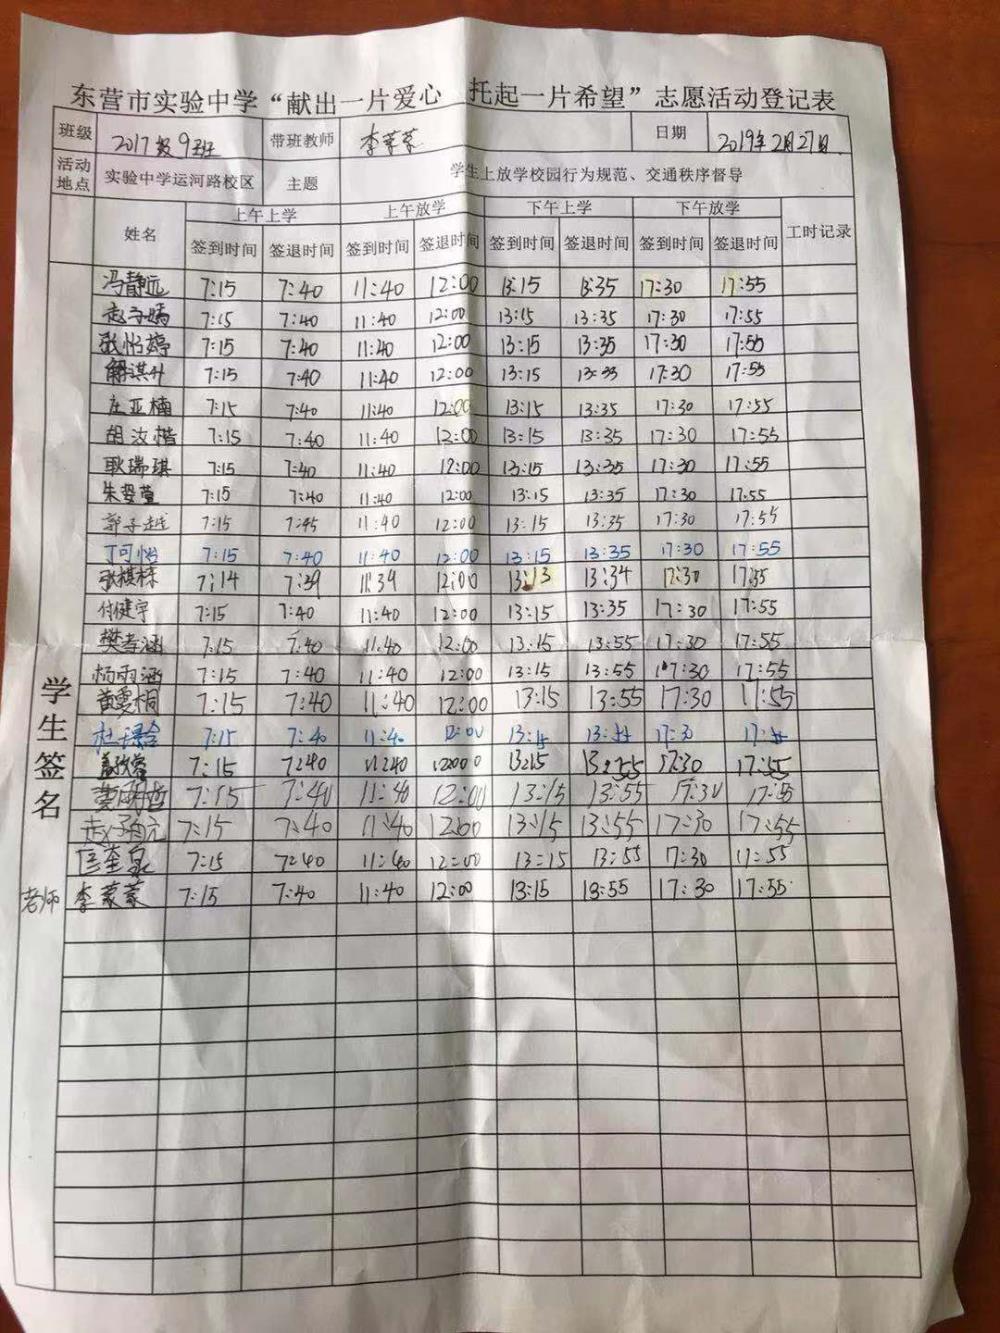 东营市实验中学“献出一片爱心 托起一片希望”志愿活动登记表
班级 2017级9班 带班教师 李蒙蒙 日期 2019年2月27日
活动地点 实验中学运河路校区 主题 学生上放学校园行为规范、交通秩序督导
姓名 上午上学 上午放学 下午上学 下午放学 工时记录
签到时间 签退时间 签到时间 签退时间 签到时间 签退时间 签到时间 签退时间
学生签名
冯静远 7:15 7:40 11:40 12:00 13:15 13:35 17:30 17:55
赵子嫣 7:15 7:40 11:40 12:00 13:15 13:35 17:30 17:55
张怡婷 7:15 7:40 11:40 12:00 13:15 13:35 17:30 17:55
解淇升 7:15 7:40 11:40 12:00 13:15 13:35 17:30 17:55
庄亚楠 7:15 7:40 11:40 12:00 13:15 13:35 17:30 17:55
胡汝楷 7:15 7:40 11:40 12:00 13:15 13:35 17:30 17:55
耿瑞琪 7:15 7:40 11:40 12:00 13:15 13:35 17:30 17:55
7:15 7:40 11:40 12:00 13:15 13:35 17:30 17:55
郭子越 7:15 7:45 11:40 12:00 13:15 13:35 17:30 17:55
丁可怡 7:15 7:40 11:40 12:00 13:15 13:35 17:30 17:55
张棋栋 7:14 7:39 11:39 12:00 13:13 13:34 17:30 17:55
付健宇 7:15 7:40 11:40 12:00 13:15 13:35 17:30 17:55
樊孝涵 7:15 7:40 11:40 12:00 13:15 13:55 17:30 17:55
杨雨涵 7:15 7:40 11:40 12:00 13:15 13:55 17:30 17:55
黄雯桐 7:15 7:40 11:40 12:00 13:15 13:55 17:30 17:55
7:15 7:40 11:40 12:00 13:15 17:30
7:15 7:40 11:40 12:00 13:15 13:55 17:30 17:55
7:15 7:40 11:40 12:00 13:15 13:55 17:30 17:55
7:15 7:40 11:40 12:00 13:15 13:55 17:30 17:55
匡奎泉 7:15 7:40 11:40 12:00 13:15 13:55 17:30 17:55
老师 李蒙蒙 7:15 7:40 11:40 12:00 13:15 13:55 17:30 17:55